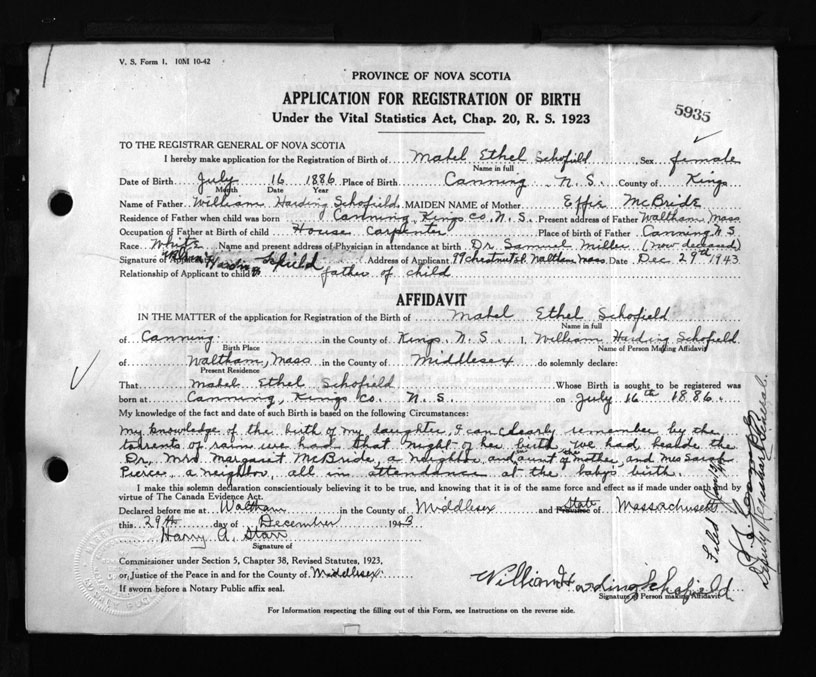 V. S. Form 1. 10M 10-42
PROVINCE OF NOVA SCOTIA
APPLICATION FOR REGISTRATION OF BIRTH
5935
Under the Vital Statistics Act, Chap. 20, R. S. 1923
TO THE REGISTRAR GENERAL OF NOVA SCOTIA
I hereby make application for the Registration of Birth of Mabel Ethel Schofield Sex female
Name in full
Date of Birth July 16 1886 Place of Birth Canning N. S. County of Kings
Month Date Year
Name of Father William Harding Schofield MAIDEN NAME of Mother Effie McBride
Residence of Father when child was born Canning, Kings Co. N. S. Present address of Father Waltham, Mass
Occupation of Father at Birth of child House Carpenter Place of birth of Father Canning N. S.
Race White Name and present address of Physician in attendance at birth Dr. Samuel Miller (now deceased)
Signature of Applicant William Harding Schofield Address of Applicant 99 Chestnut St. Waltham Mass. Date Dec 29th 1943
Relationship of Applicant to child father of child
AFFIDAVIT
IN THE MATTER of the application for Registration of the Birth of Mabel Ethel Schofield
Name in full
of Canning in the County of Kings. N. S. I, William Harding Schofield
Birth Place Name of Person Making Affidavit
of Waltham, Mass in the County of Middlesex do solemnly declare:
Present Residence
That Mabel Ethel Schofield Whose Birth is sought to be registered was
born at Canning, Kings Co. N. S. on July 16th 1886.
My knowledge of the fact and date of such Birth is based on the following Circumstances:
My knowledge of the birth of my daughter, I can clearly remember by the
torrents of rain we had that night of her birth. We had beside the
Dr., Mrs. Margaret McBride, a neighbor and aunt of the mother, and Mrs Sarah
Pierce, a neighbor, all in attendance at the baby's birth.
I make this solemn declaration conscientiously believing it to be true, and knowing that it is of the same force and effect as if made under oath and by
virtue of The Canada Evidence Act.
Declared before me at Waltham in the County of Middlesex and Province of State Massachusetts
this 29th day of December 1943
Harry A. Starr
Signature of
Commissioner under Section 5, Chapter 38, Revised Statutes, 1923,
or, Justice of the Peace in and for the County of Middlesex
If sworn before a Notary Public affix seal.
William Harding Schofield
Signature of Person making Affidavit
For Information respecting the filling out of this Form, see Instructions on the reverse side.
Filed Jan
Deputy Registrar General.